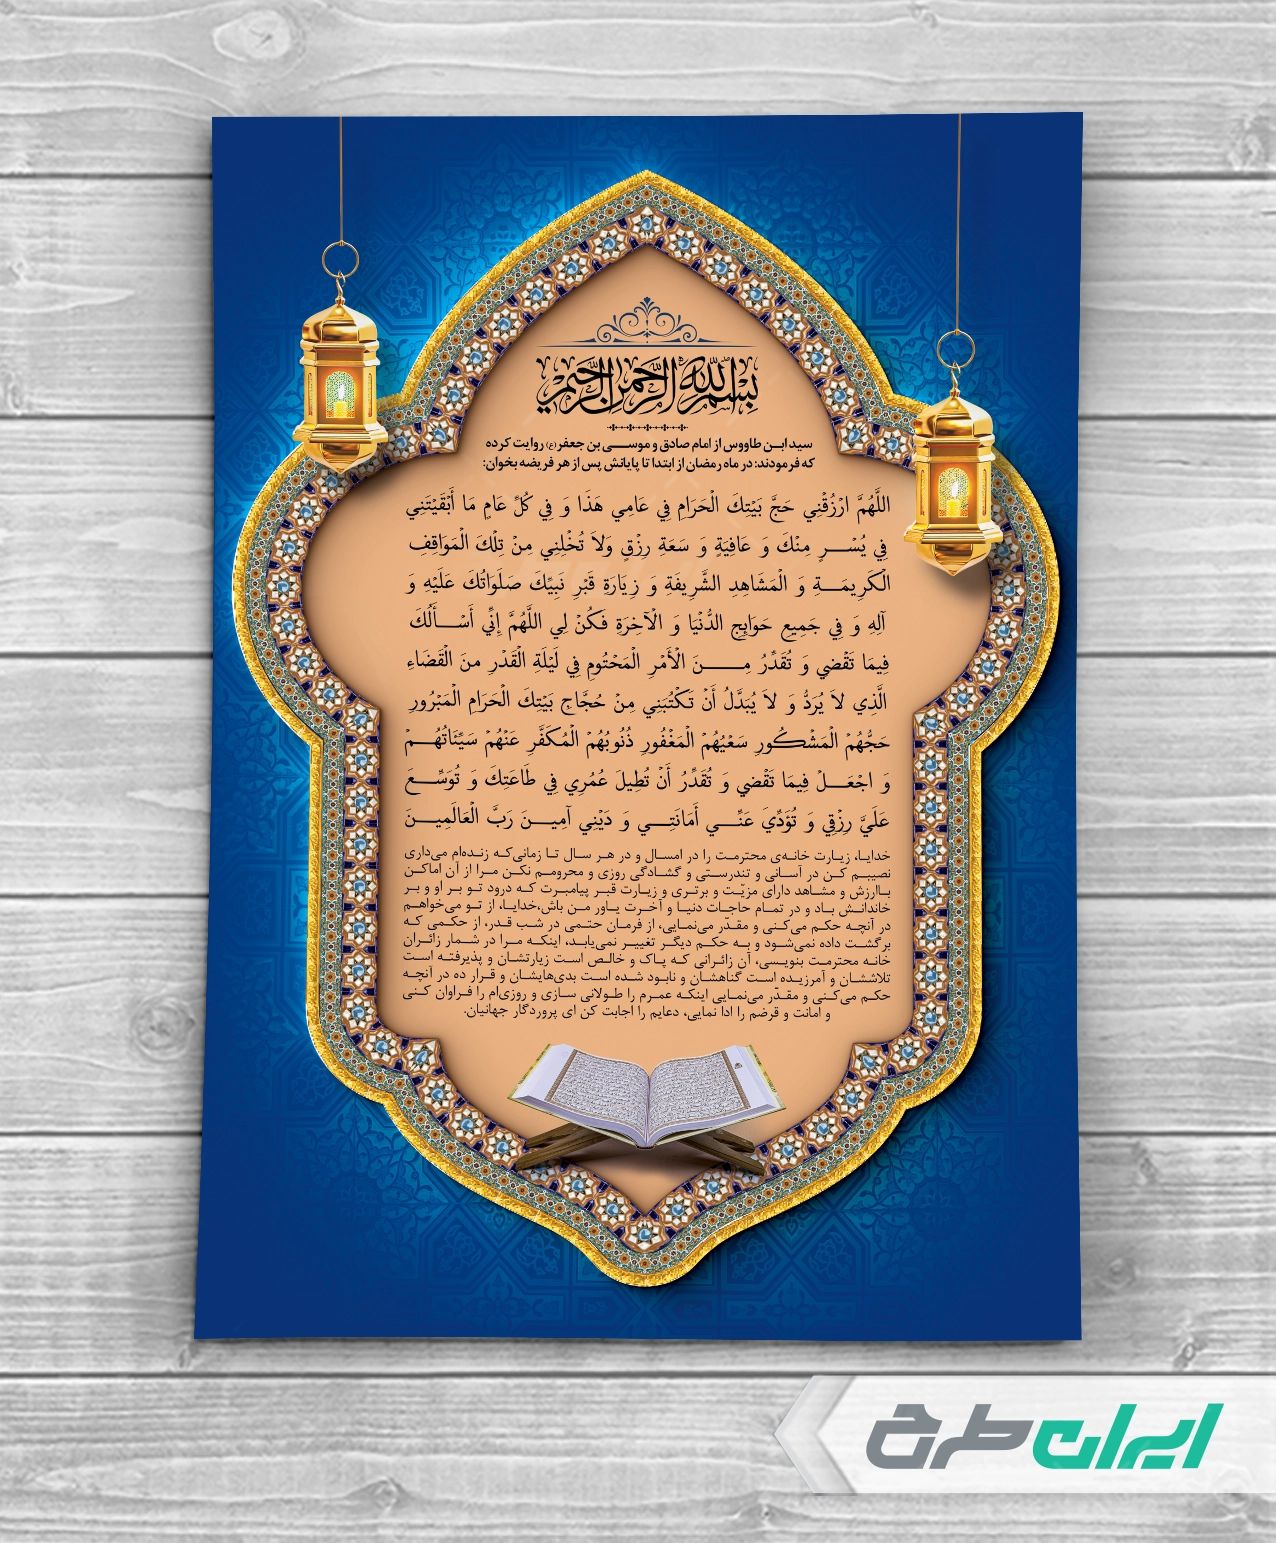 بسم الله الرحمن الرحیم
سید ابن طاووس از امام صادق و موسی بن جعفر (ع) روایت کرده
که فرمودند: در ماه رمضان از ابتدا تا پایانش پس از هر فریضه بخوان:
اللَّهُمَّ ارْزُقْنِي حَجَّ بَيْتِكَ الْحَرَامِ فِي عَامِي هَذَا وَ فِي كُلِّ عَامٍ مَا أَبْقَيْتَنِي
فِي يُسْرٍ مِنْكَ وَ عَافِيَةٍ وَ سَعَةِ رِزْقٍ وَلاَ تُخْلِنِي مِنْ تِلْكَ الْمَوَاقِفِ
الْكَرِيمَةِ وَ الْمَشَاهِدِ الشَّرِيفَةِ وَ زِيَارَةِ قَبْرِ نَبِيِّكَ صَلَوَاتُكَ عَلَيْهِ وَ
آلِهِ وَ فِي جَمِيعِ حَوَايِجِ الدُّنْيَا وَ الْآخِرَةِ فَكُنْ لِي اللَّهُمَّ إِنِّي أَسْأَلُكَ
فِيمَا تَقْضِي وَ تُقَدِّرُ مِنَ الْأَمْرِ الْمَحْتُومِ فِي لَيْلَةِ الْقَدْرِ منَ الْقَضَاءِ
الَّذِي لاَ يُرَدُّ وَ لاَ يُبَدَّلُ أَنْ تَكْتُبَنِي مِنْ حُجَّاجِ بَيْتِكَ الْحَرَامِ الْمَبْرُورِ
حَجُّهُمْ الْمَشْكُورِ سَعْيُهُمْ الْمَغْفُورِ ذُنُوبُهُمْ الْمُكَفَّرِ عَنْهُمْ سَيِّئَاتُهُمْ
وَ اجْعَلْ فِيمَا تَقْضِي وَ تُقَدِّرُ أَنْ تُطِيلَ عُمُرِي فِي طَاعَتِكَ وَ تُوَسِّعَ
عَلَيَّ رِزْقِي وَ تُؤَدِّيَ عَنِّي أَمَانَتِي وَ دَيْنِي آمِينَ رَبَّ الْعَالَمِينَ
خدایا، زیارت خانه‌ی محترمت را در امسال و در هر سال تا زمانی‌که زنده‌ام می‌داری
نصیبم کن در آسانی و تندرستی و گشادگی روزی و محرومم نکن مرا از آن اماکن
باارزش و مشاهد دارای مزیّت و برتری و زیارت قبر پیامبرت که درود تو بر او و بر
خاندانش باد و در تمام حاجات دنیا و آخرت یاور من باش،خدایا، از تو می‌خواهم
در آنچه حکم می‌کنی و مقدّر می‌نمایی، از فرمان حتمی در شب قدر، از حکمی که
برگشت داده نمی‌شود و به حکم دیگر تغییر نمی‌یابد، اینکه مرا در شمار زائران
خانه محترمت بنویسی، آن زائرانی که پاک و خالص است زیارتشان و پذیرفته است
تلاششان و آمرزیده است گناهشان و نابود شده است بدی‌هایشان و قرار ده در آنچه
حکم می‌کنی و مقدّر می‌نمایی اینکه عمرم را طولانی سازی و روزی‌ام را فراوان کنی
و امانت و قرضم را ادا نمایی، دعایم را اجابت کن ای پروردگار جهانیان.
ایران طرح